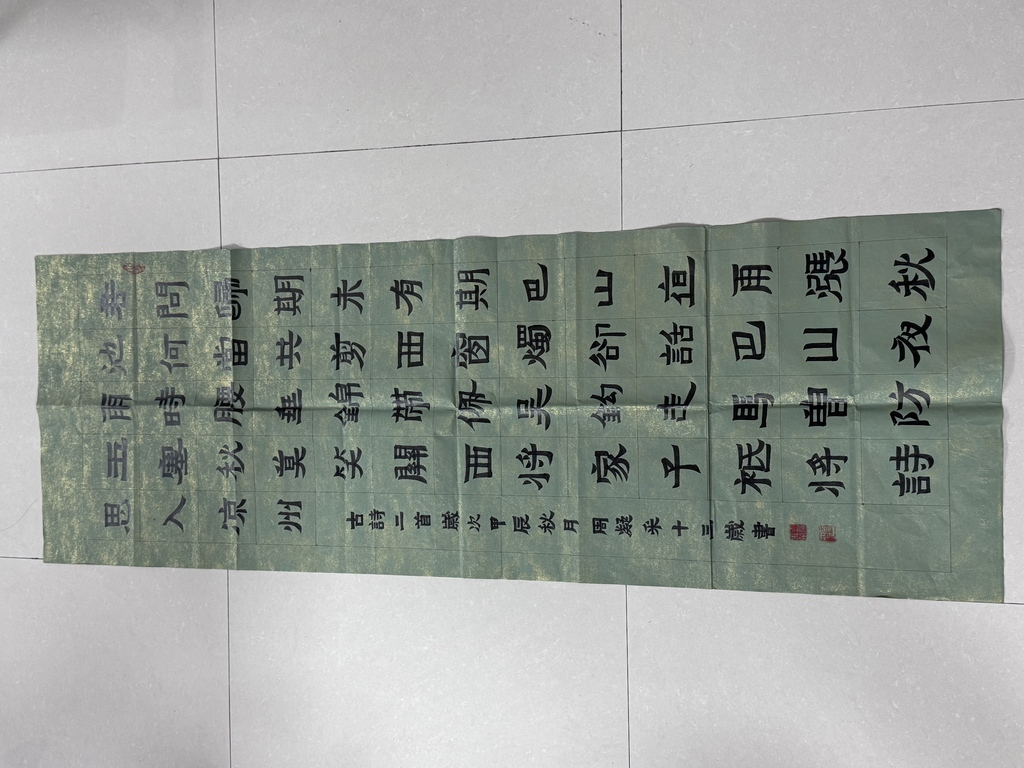 君問歸期未有期巴山亱雨漲秋
池何當共剪西窗燭卻話巴山夜
雨時腰垂錦帶佩吴鈎走馬曽防
玉塞秋莫笑關西将家子袛将詩
思入凉州
古詩二首歲次甲辰秋月周凝采十三歲書